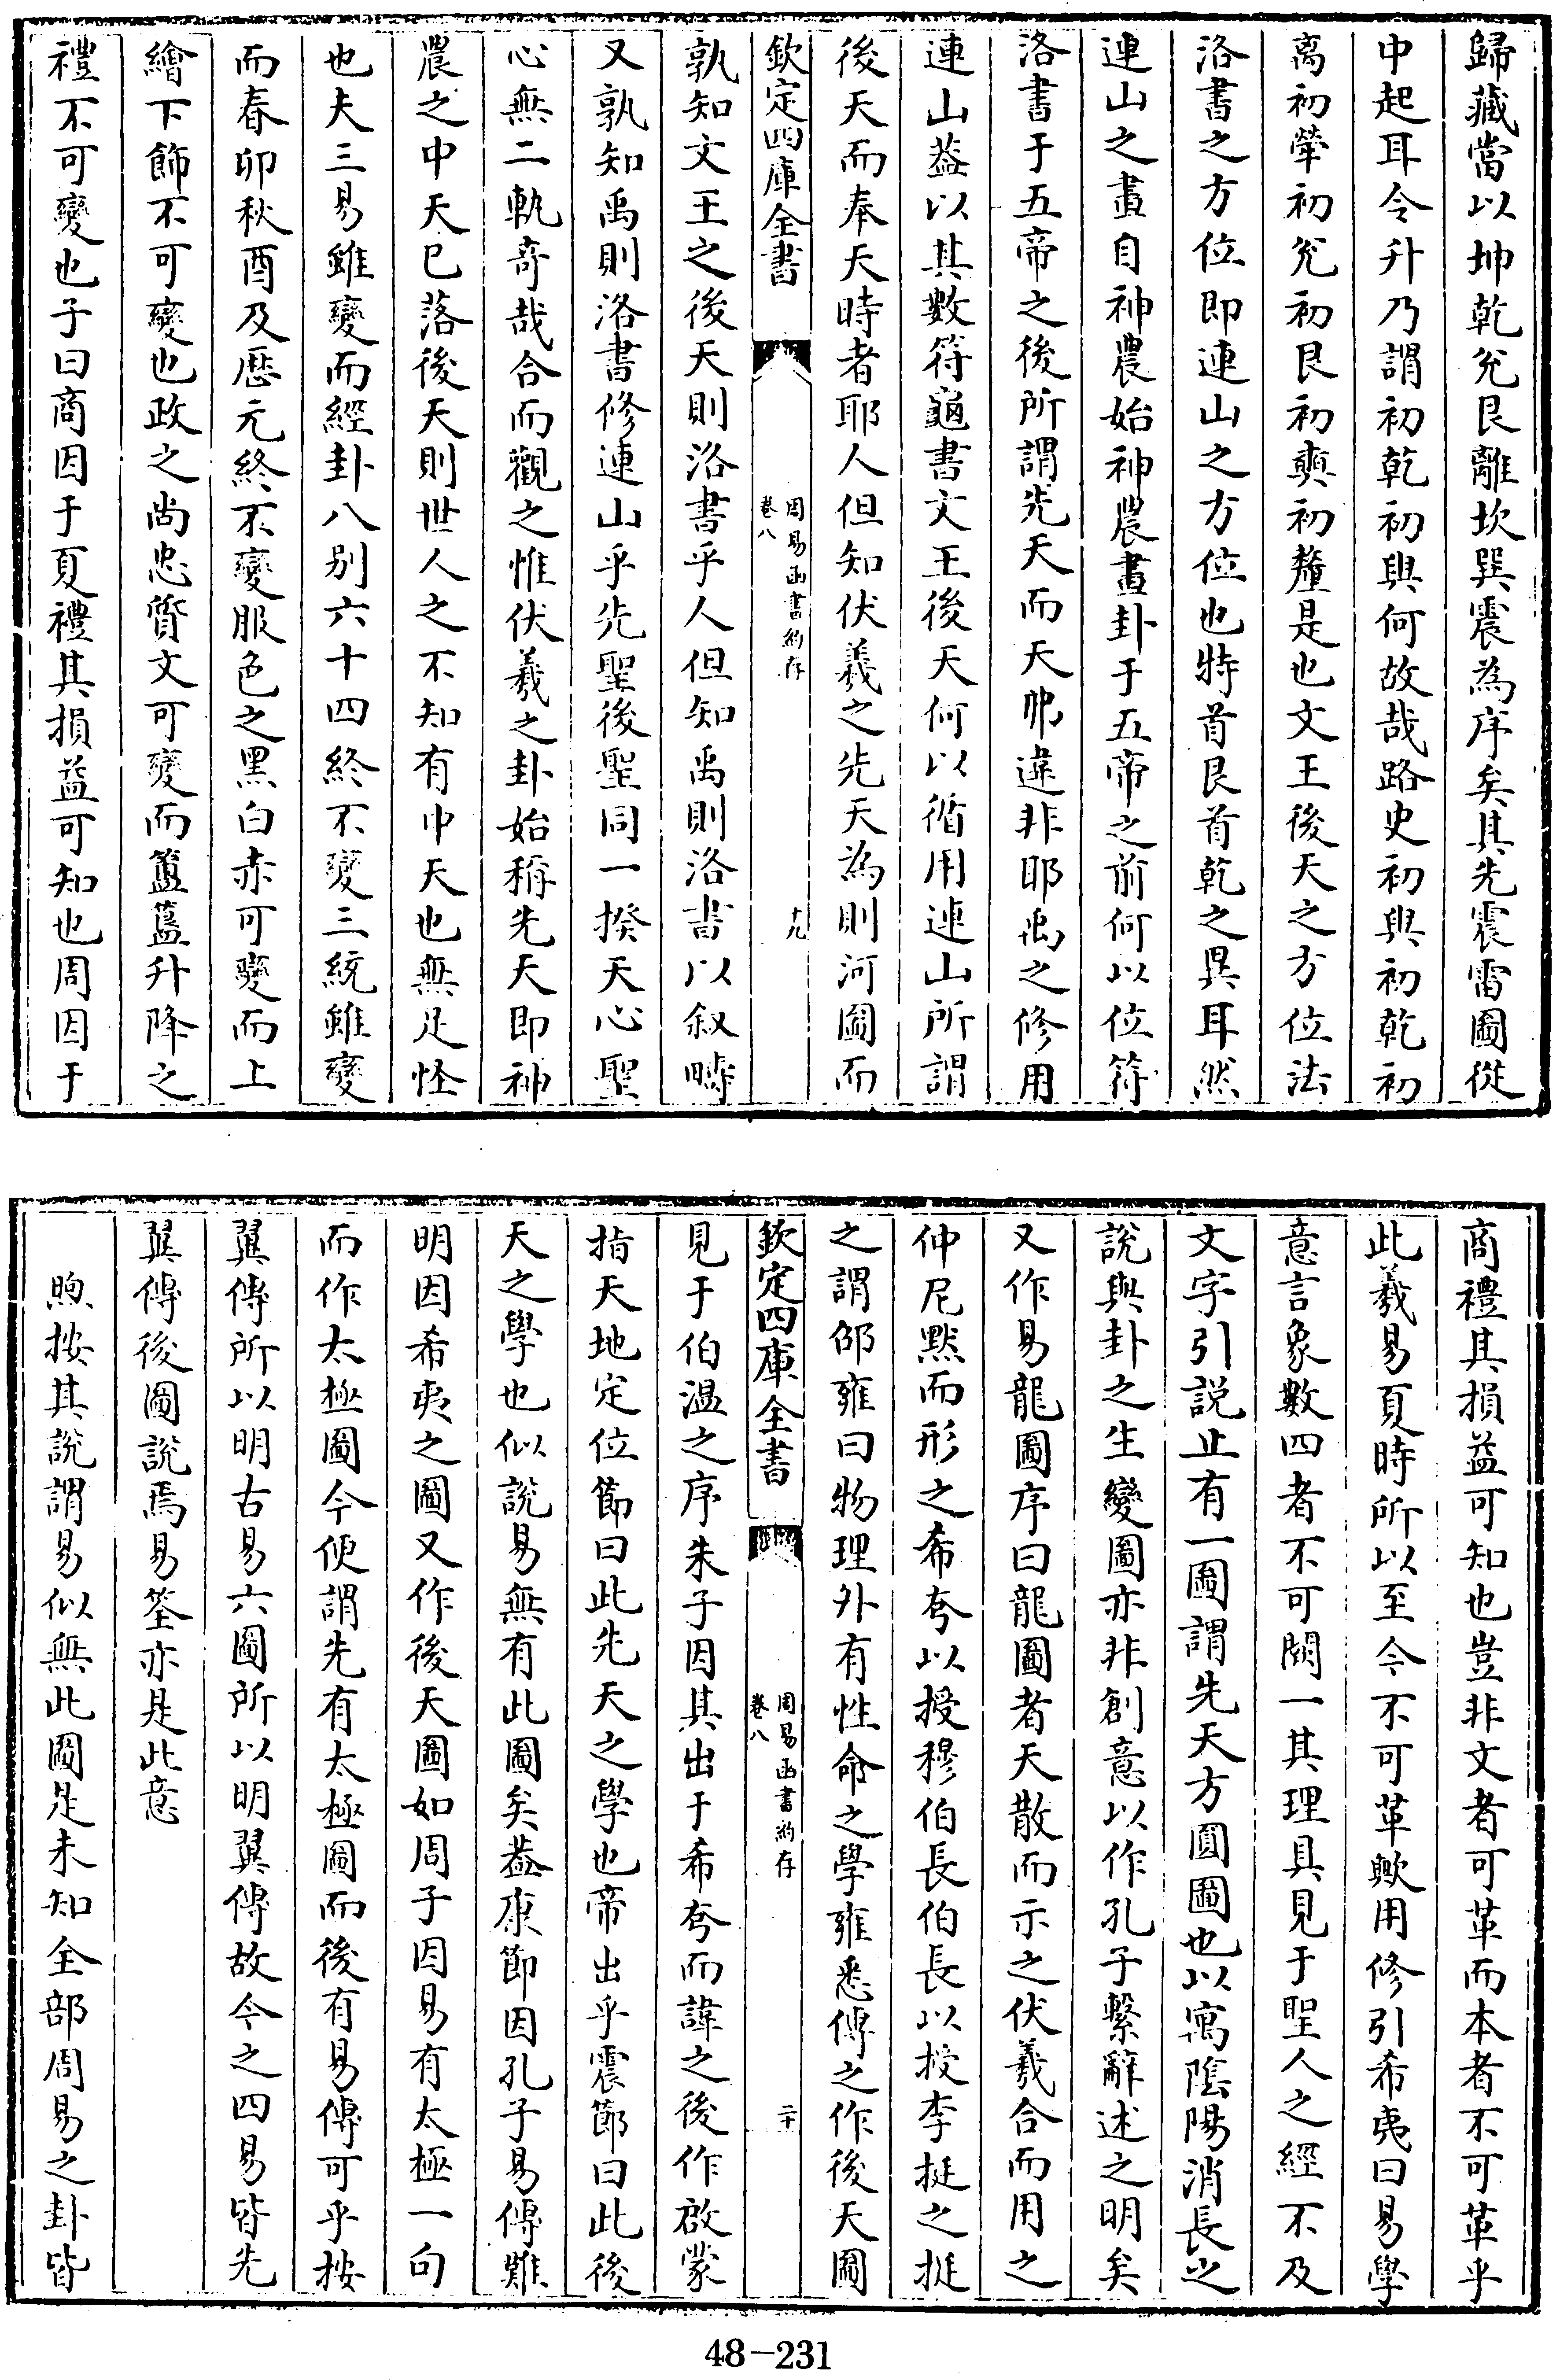 歸藏當以坤乾兊艮離坎巽震為序矣其先震雷圖從
中起耳令升乃謂初乾初與何故哉路史初與初乾初
离初犖初兊初艮初奭初釐是也文王後天之方位法
洛書之方位即連山之方位也特首艮首乾之異耳然
連山之畫自神農始神農畫卦于五帝之前何以位符
洛書于五帝之後所謂先天而天弗違非耶禹之修用
連山葢以其數符龜書文王後天何以循用連山所謂
後天而奉天時者耶人但知伏羲之先天為則河圖而
欽定四庫全書
周易函書約存
卷八
十九
孰知文王之後天則洛書乎人但知禹則洛書以叙疇
又孰知禹則洛書修連山乎先聖後聖同一揆天心聖
心無二軌奇哉合而觀之惟伏羲之卦始稱先天即神
農之中天已落後天則世人之不知有中天也無足怪
也夫三易雖變而經卦八别六十四終不變三統雖變
而春卯秋酉及歴元終不變服色之黑白赤可變而上
繪下飾不可變也政之尚忠質文可變而簠簋升降之
禮不可變也子曰商因于夏禮其損益可知也周因于
商禮其損益可知也豈非文者可革而本者不可革乎
此羲易夏時所以至今不可革歟用修引希夷曰易學
意言象數四者不可闕一其理具見于聖人之經不及
文字引説止有一圖謂先天方圓圖也以寓陰陽消長之
說與卦之生變圖亦非創意以作孔子繫辭述之明矣
又作易龍圖序曰龍圖者天散而示之伏羲合而用之
仲尼黙而形之希夷以授穆伯長伯長以授李挺之挺
之謂邵雍曰物理外有性命之學雍悉傳之作後天圖
欽定四庫全書
周易函書約存
卷八
二十
見于伯温之序朱子因其出于希夷而諱之後作啟蒙
指天地定位節曰此先天之學也帝出乎震節曰此後
天之學也似說易無有此圖矣葢康節因孔子易傳難
明因希夷之圖又作後天圖如周子因易有太極一句
而作太極圖今便謂先有太極圖而後有易傳可乎按
翼傳所以明古易六圖所以明翼傳故今之四易皆先
翼傳後圖說焉易筌亦是此意
煦按其說謂易似無此圖是未知全部周易之卦皆
48-231